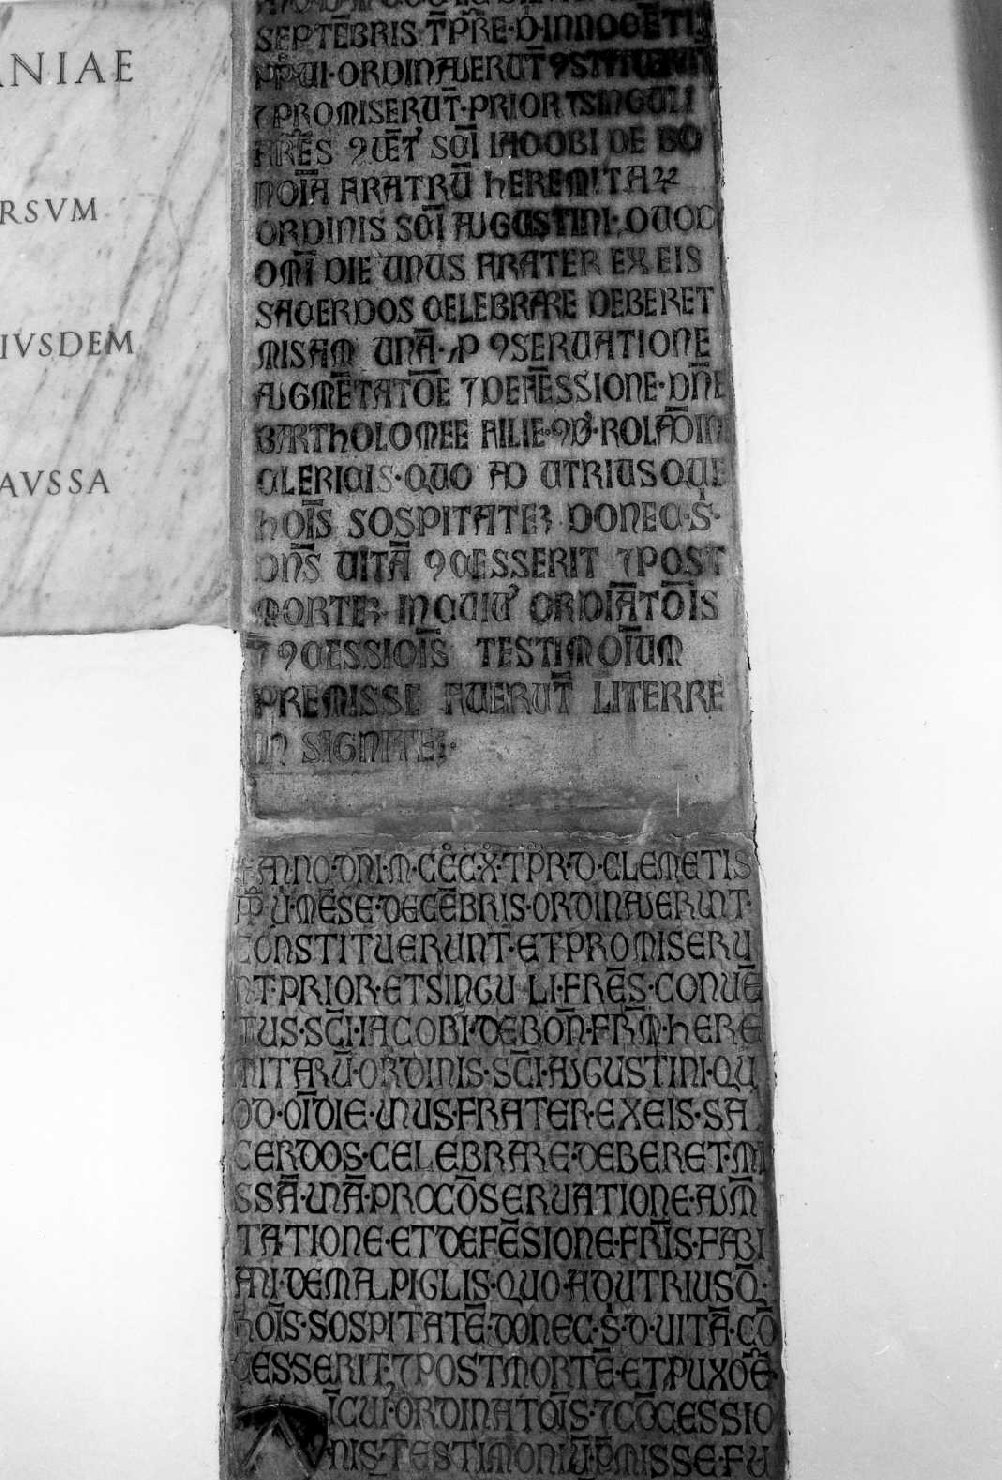 NIAE
RSVM
IVSDEM
AVSSA
SEPTĒBRIS·T̄PR̄E·D·INNOCĒTII
P̄P̄·VI·ORDINAVERŪT ꝯSTITUERŪT
⁊ PROMISERŪT·PRIOR ⁊SINGULI
FRĒS ꝯVĒT' SC̄I IACOBI DE BO
NOĪA FRATRŪ HEREMITAꝜ
ORDINIS SC̄I AUGUSTINI·QUOD
OM̄I DIE UNUS FRATER EX EIS
SACERDOS CELEBRARE DEBERET
MISAM UNĀ·P ꝯSERUATIONE
AUGMĒTATŌE ⁊DEFĒSSIONE·DN̄E
BARTHOLOMEE FILIE·QD̄·ROLĀDIN̄
CLERICIS·QUO AD UTRIUSQUE
HOĪS SOSPITATEꝫ DONEC·S̄
DN̄S UITĀ ꝯCESSERIT ⁊POST
MORTE·INCUIU' ORDINATŌIS
⁊ꝯCESSIOĪS TESTIMOĪUM
PREMISSE FUERŪT LITTERE
IN SIGNITE:
ANNO·DNI·M·CCCX·TPR̄·D·CLEMETIS
P̄P̄ U·MĒSE·DECĒBRIS·ORDINAVERUNT
CONSTITUERUNT·ET PROMISERU
NT·PRIOR·ET SINGULI·FRĒS·CONUĒ
TUS·SC̄I·IACOBI·DE BON̄·FRM̄·HERE
MITARŪ·ORDINIS·SC̄I·AUGUSTINI·QU
OD·OĪ DIE·UNUS·FRATER·EX EIS·SA
CERDOS·CELEBRARE·DEBERET·MI
SSĀ·UNĀ·PRO CŌSERUATIONE·AUM̄
TATIONE·ET DEFĒSIONE·FRĪS·FABI
ANI·DE MALPIGLIS·QUO ADUTRIUSQ̄·
HOĪS·SOSPITATĒ·DONEC·S̄·D·UITĀ·CŌ
CESSERIT·⁊POST MORTĒ·ET P UXOR̄Ē
ICUI·ORDINATOĪS·⁊CŌCESSIO
NIS·TESTIMONIŪ·P̄MISSE·FU